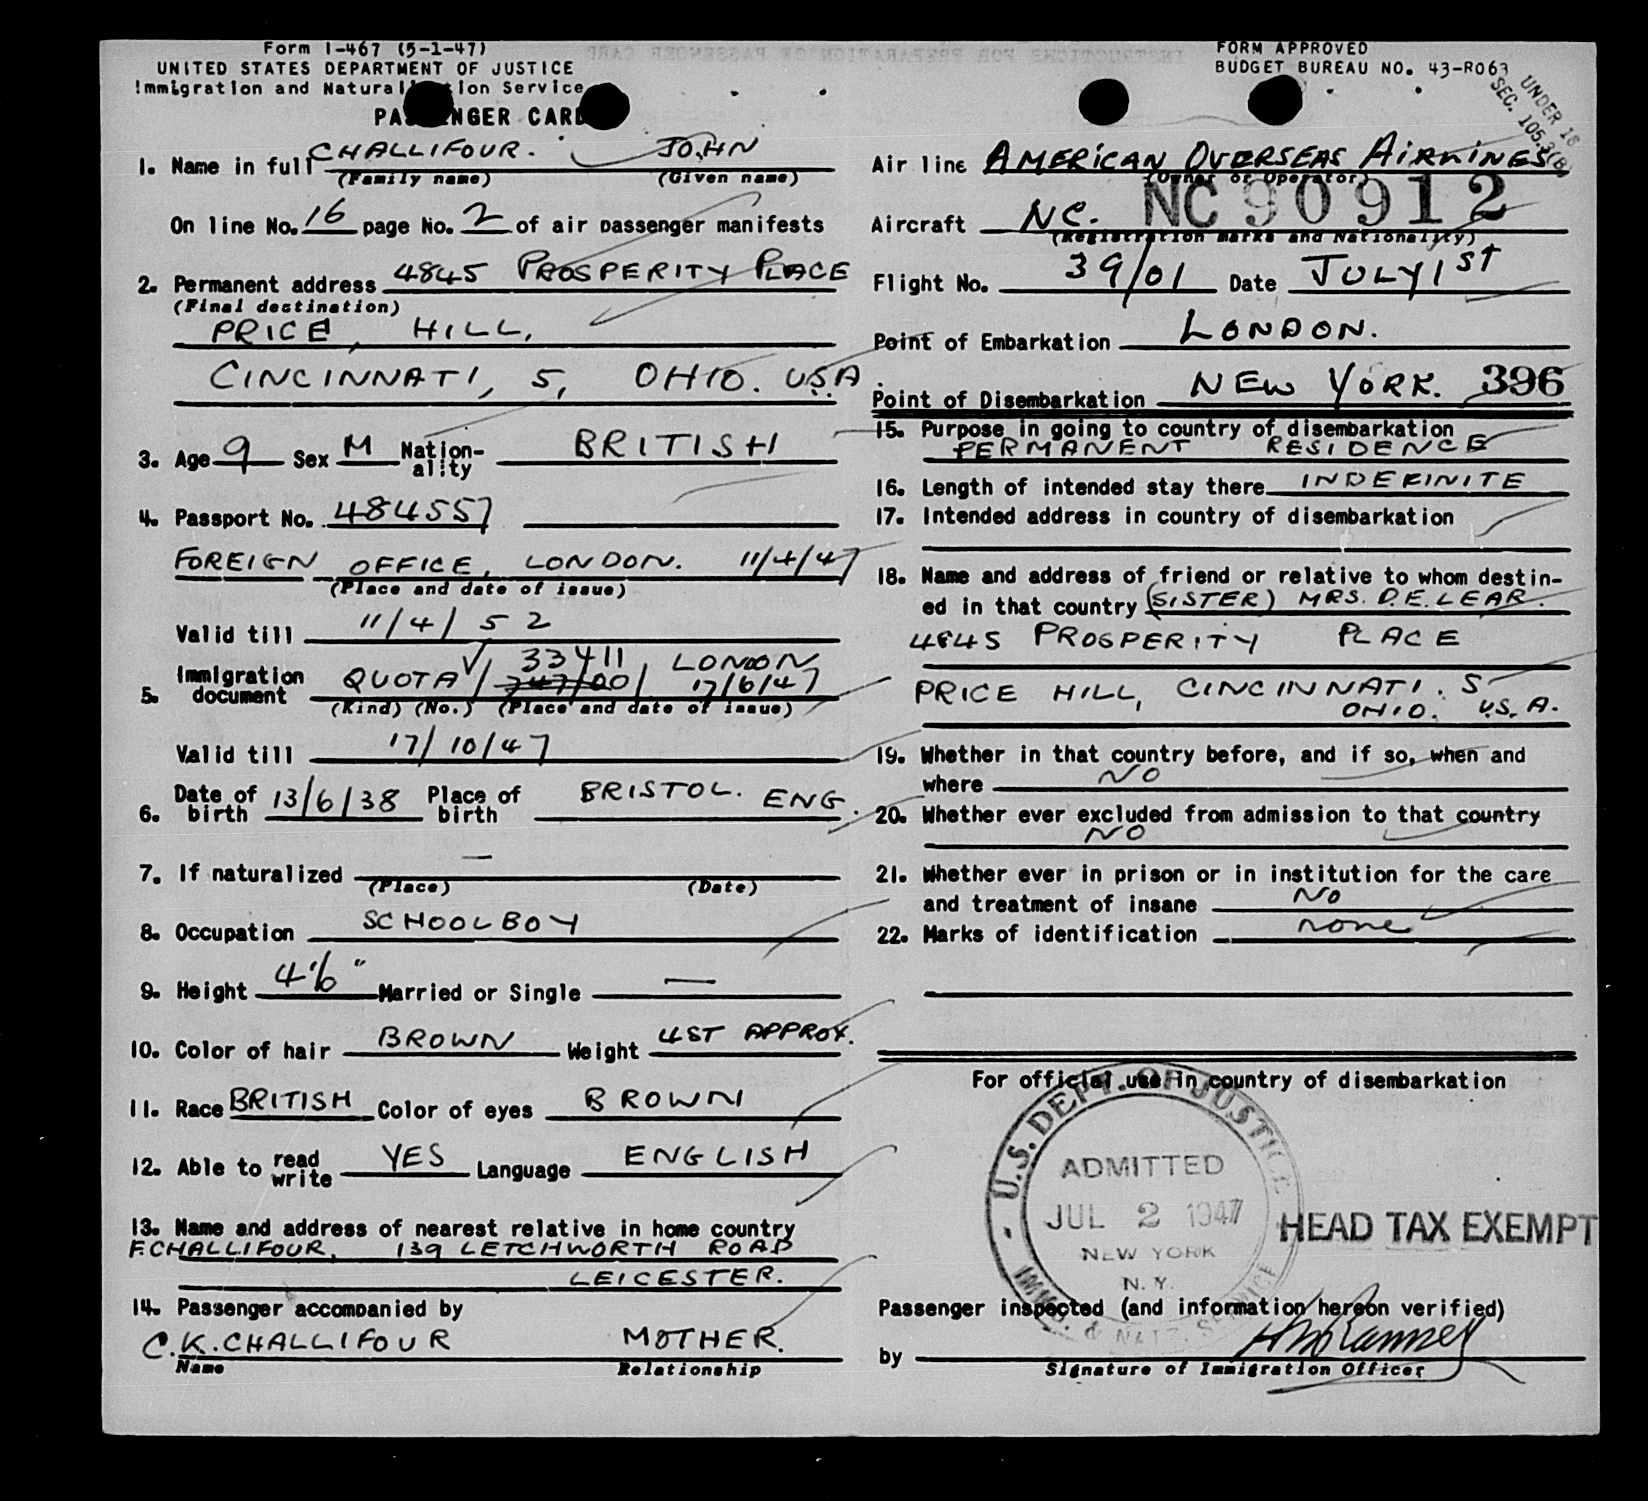 Form I-467 (5-1-47)
UNITED STATES DEPARTMENT OF JUSTICE
Immigration and Naturalization Service
PASSENGER CARD
1. Name in full CHALLIFOUR. JOHN
(Family name) (Given name)
On line No. 16 page No. 2 of air passenger manifests
2. Permanent address 4845 PROSPERITY PLACE
(Final destination)
PRICE HILL,
CINCINNATI, 5, OHIO. USA.
3. Age 9 Sex M Nation-ality BRITISH
4. Passport No. 484557
FOREIGN OFFICE, LONDON. 11/4/47
(Place and date of issue)
Valid till 11/4/52
5. Immigration document QUOTA / 33411 / LONDON 17/6/47
(Kind) (No.) (Place and date of issue)
Valid till 17/10/47
6. Date of birth 13/6/38 Place of birth BRISTOL. ENG.
7. If naturalized —
(Place) (Date)
8. Occupation SCHOOLBOY
9. Height 4'6" Married or Single —
10. Color of hair BROWN Weight 4ST APPROX.
11. Race BRITISH Color of eyes BROWN
12. Able to read write YES Language ENGLISH
13. Name and address of nearest relative in home country
F.CHALLIFOUR, 139 LETCHWORTH ROAD
LEICESTER.
14. Passenger accompanied by
C.K.CHALLIFOUR MOTHER.
Name Relationship
FORM APPROVED
BUDGET BUREAU NO. 43-R063
UNDER 16
SEC. 105.3(B)
Air line AMERICAN OVERSEAS AIRLINES
(Owner or Operator)
Aircraft NC. NC90912
(Registration marks and Nationality)
Flight No. 39/01 Date JULY 1ST
Point of Embarkation LONDON.
Point of Disembarkation NEW YORK. 396
15. Purpose in going to country of disembarkation
PERMANENT RESIDENCE
16. Length of intended stay there INDEFINITE
17. Intended address in country of disembarkation
18. Name and address of friend or relative to whom destin-
ed in that country (SISTER) MRS. D.E.LEAR.
4845 PROSPERITY PLACE
PRICE HILL, CINCINNATI. 5
OHIO. U.S.A.
19. Whether in that country before, and if so, when and
where NO
20. Whether ever excluded from admission to that country
NO
21. Whether ever in prison or in institution for the care
and treatment of insane No
22. Marks of identification none
For official use in country of disembarkation
U.S. DEPT. OF JUSTICE
ADMITTED
JUL 2 1947
NEW YORK
N.Y.
IMMIG. & NATZ. SERVICE
HEAD TAX EXEMPT
Passenger inspected (and information hereon verified)
by
Signature of Immigration Officer